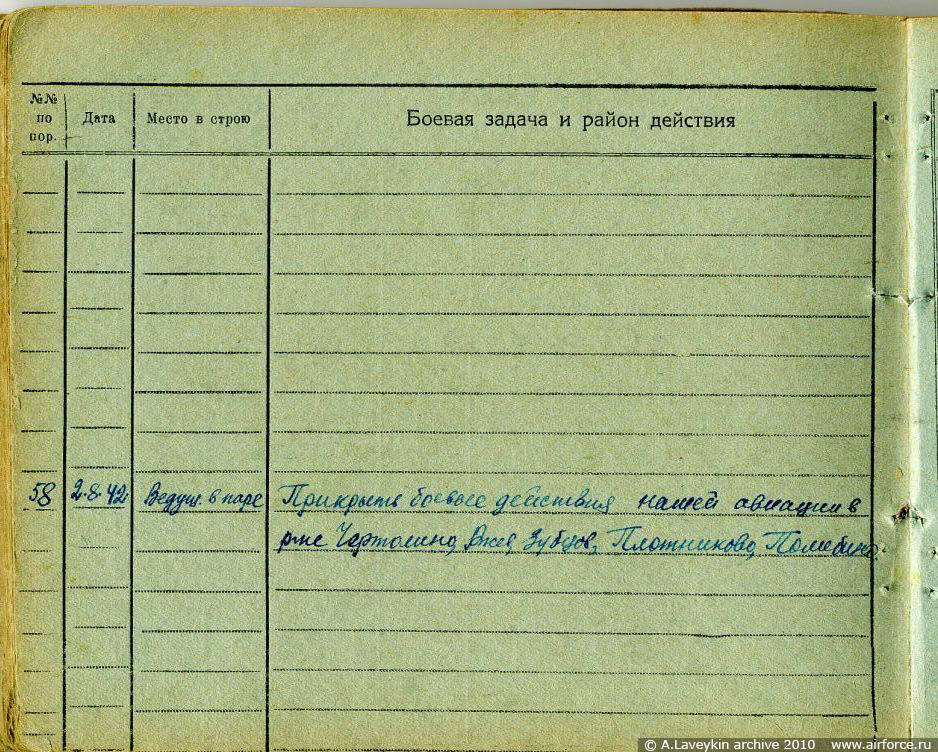 №№ по пор. Дата Место в строю Боевая задача и район действия
58 2.8.42 Ведущ. в паре Прикрыть боевые действия нашей авиации в
р-не Чертолино, Ржев, Зубцов, Плотниково,
© A.Laveykin archive 2010 www.airforce.ru